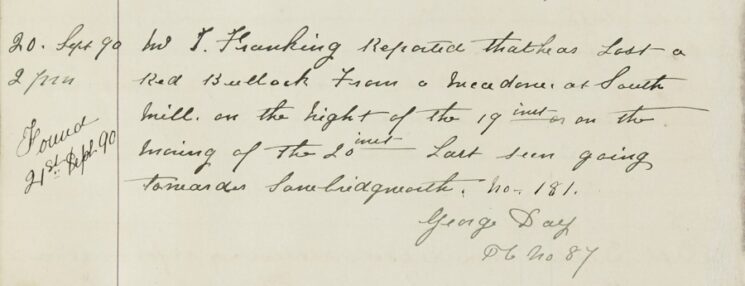 20. Sept 90 Mr T. Franking Reported that heas Lost a
2 pm Red Bullock From a Meadow. at South
Mill. on the Night of the 19 inst or on the
Found Moning of the 20 inst Last seen going
21st Sept. 90 towardes Sawbridgworth. No. 181.
George Day
PC No 87